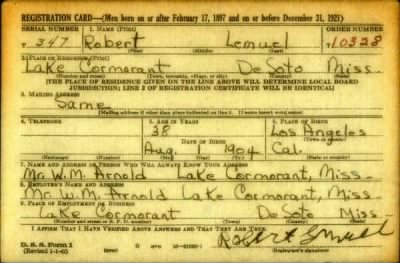 REGISTRATION CARD—(Men born on or after February 17, 1897 and on or before December 31, 1921)
SERIAL NUMBER 1. NAME (Print) ORDER NUMBER
T 347 Robert Lemuel 10328
(First) (Middle) (Last)
2. PLACE OF RESIDENCE (Print)
Lake Cormorant De Soto Miss.
(Number and street) (Town, township, village, or city) (County) (State)
[THE PLACE OF RESIDENCE GIVEN ON THE LINE ABOVE WILL DETERMINE LOCAL BOARD
JURISDICTION; LINE 2 OF REGISTRATION CERTIFICATE WILL BE IDENTICAL]
3. MAILING ADDRESS
Same
[Mailing address if other than place indicated on line 2. If same insert word same]
4. TELEPHONE 5. AGE IN YEARS 6. PLACE OF BIRTH
38 Los Angelos
DATE OF BIRTH (Town or county)
Aug. 1904 Cal.
(Exchange) (Number) (Mo.) (Day) (Yr.) (State or country)
7. NAME AND ADDRESS OF PERSON WHO WILL ALWAYS KNOW YOUR ADDRESS
Mr. W. M. Arnold Lake Cormorant, Miss.
8. EMPLOYER'S NAME AND ADDRESS
Mr. W. M. Arnold Lake Cormorant, Miss.
9. PLACE OF EMPLOYMENT OR BUSINESS
Lake Cormorant De Soto Miss.
(Number and street or R. F. D. number) (Town) (County) (State)
I AFFIRM THAT I HAVE VERIFIED ABOVE ANSWERS AND THAT THEY ARE TRUE.
D. S. S. Form 1
(Revised 1-1-42) (over) Robert
(Registrant's signature)